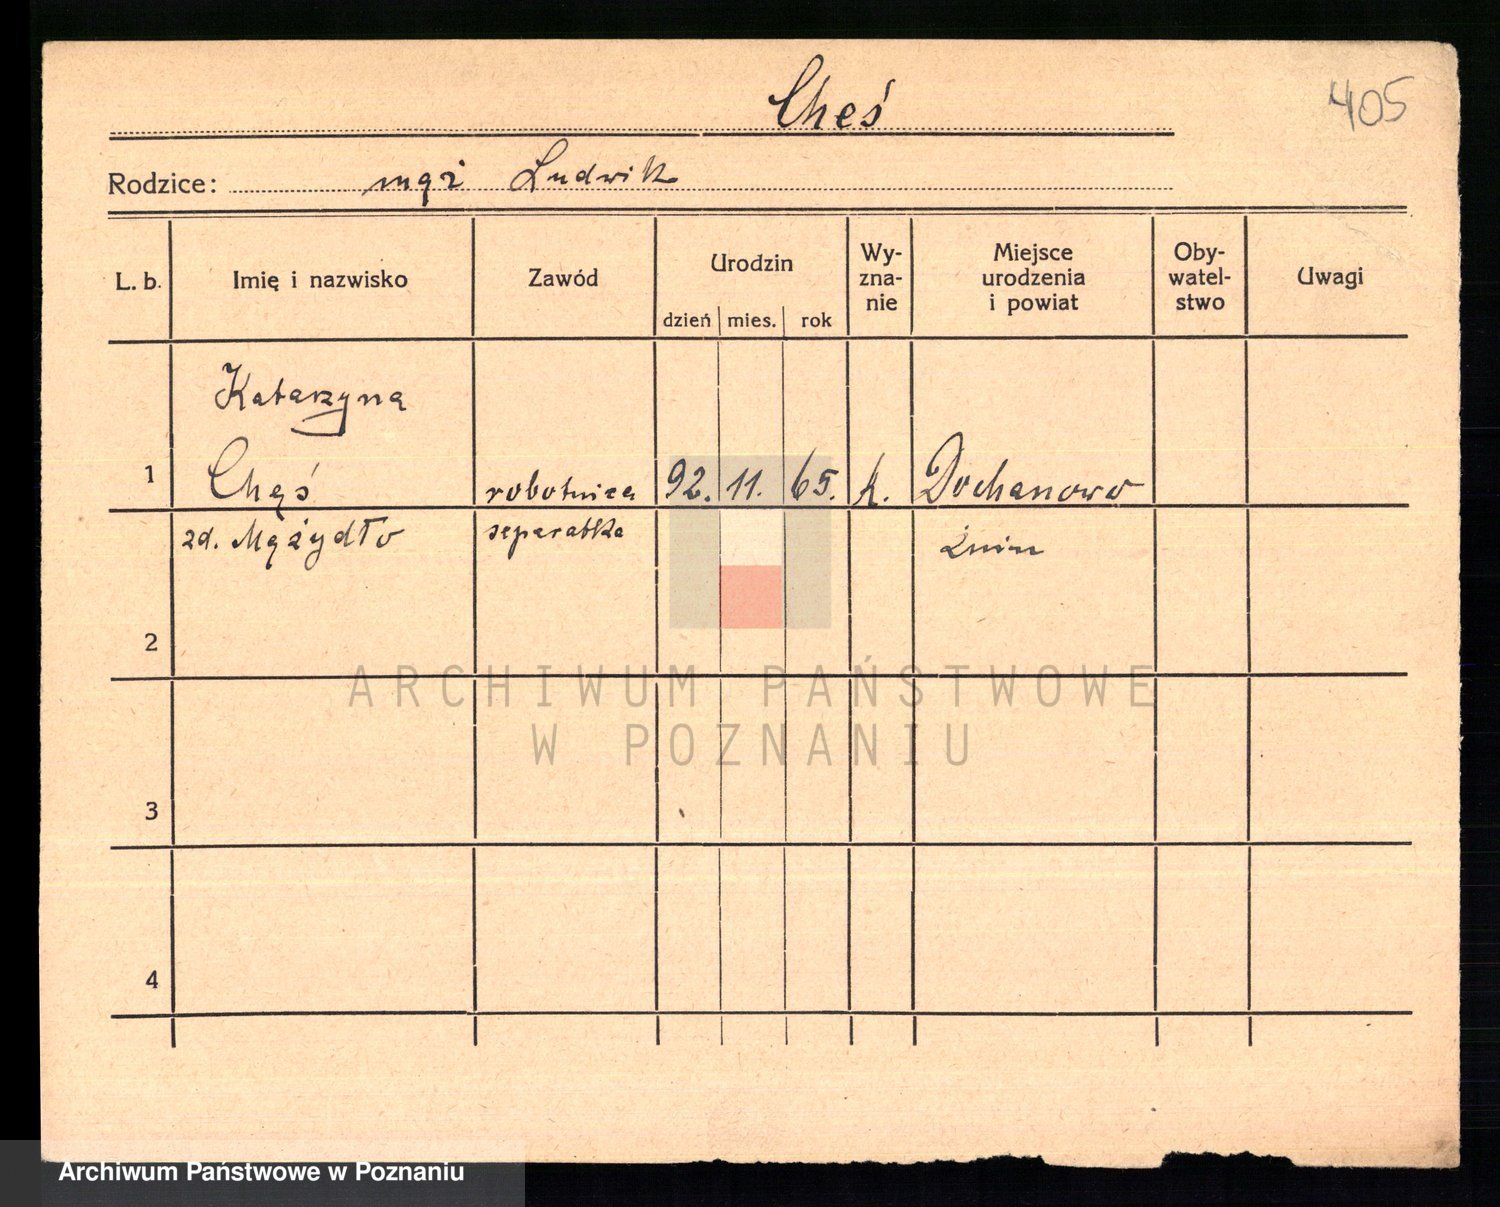 Chęś
405
Rodzice: mąż Ludwik
L. b.
Imię i nazwisko
Zawód
Urodzin
dzień
mies.
rok
Wy-
zna-
nie
Miejsce
urodzenia
i powiat
Oby-
watel-
stwo
Uwagi
Katarzyna
1
Chęś
robotnica
92. 11. 65.
k.
Dochanowo
zd. Mężydło
separatka
Żnin
2
ARCHIWUM PAŃSTWOWE
W POZNANIU
3
4
Archiwum Państwowe w Poznaniu